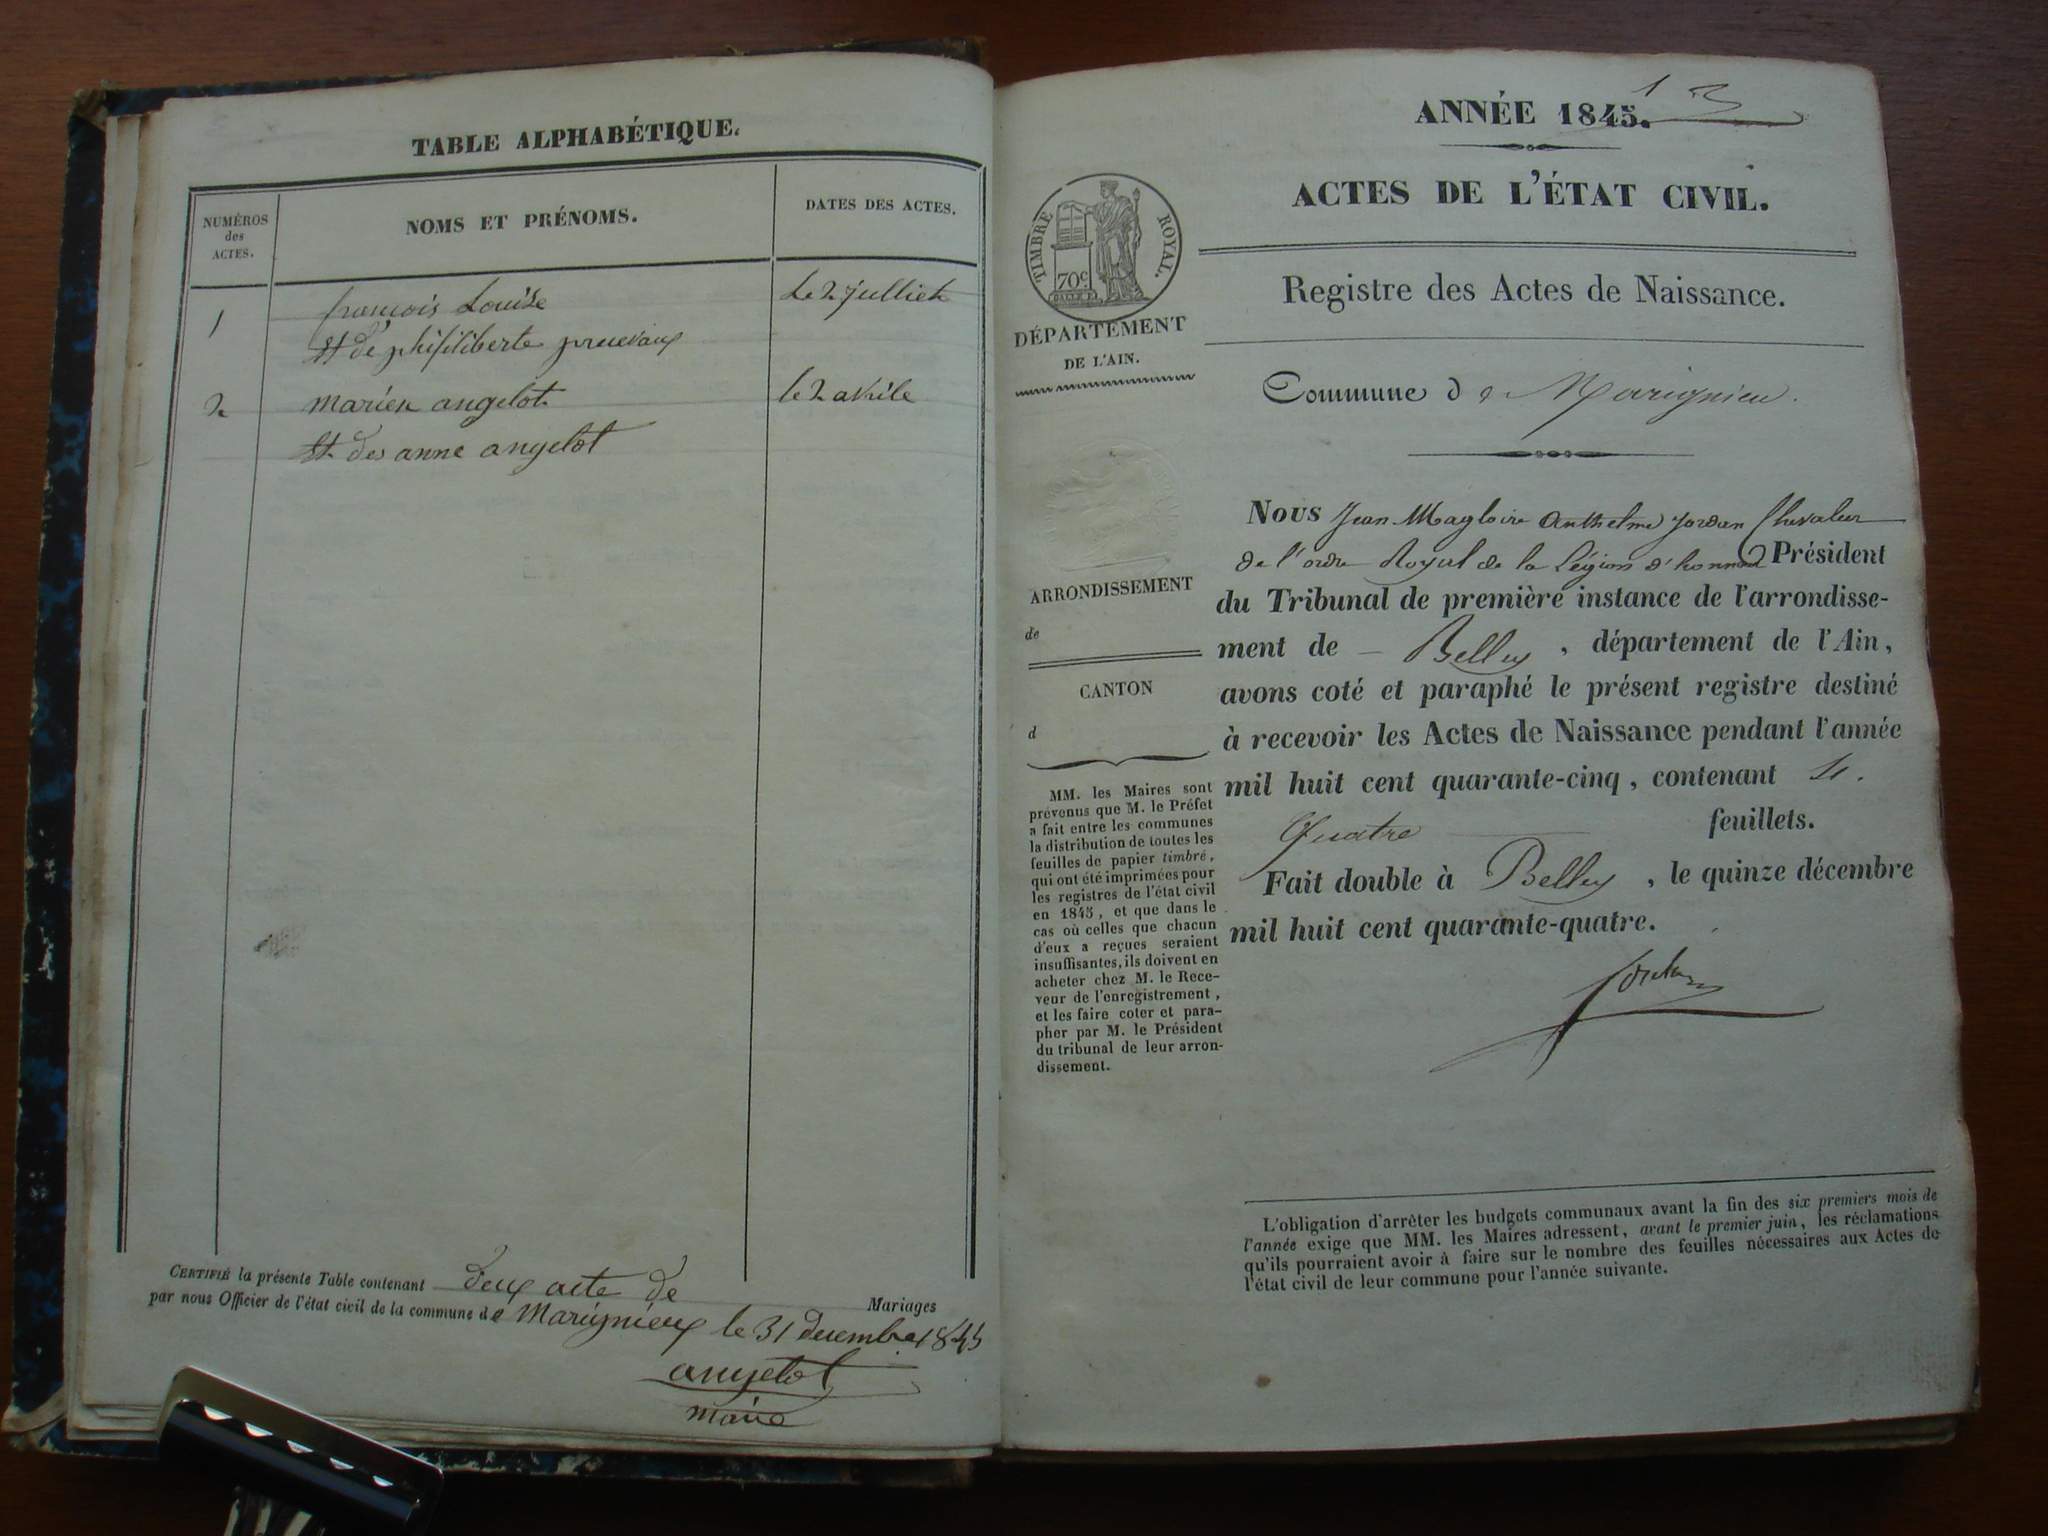 TABLE ALPHABÉTIQUE.
NUMÉROS
des
ACTES.
NOMS ET PRÉNOMS.
DATES DES ACTES.
1
françois Louise
Le 2 julliet
et de philiberte
2
marien angelot
le 2 avrile
et des anne angelot
CERTIFIÉ la présente Table contenant deux acte de Mariages
par nous Officier de l'état civil de la commune de Marignieux le 31 decembre 1845
angelot
maire
1
ANNÉE 1845.
ACTES DE L'ÉTAT CIVIL.
TIMBRE ROYAL.
70 c
DÉPARTEMENT
DE L'AIN.
Registre des Actes de Naissance.
Commune de Marignieu.
ARRONDISSEMENT
de
CANTON
d
MM. les Maires sont
prévenus que M. le Préfet
a fait entre les communes
la distribution de toutes les
feuilles de papier timbré,
qui ont été imprimées pour
les registres de l'état civil
en 1845, et que dans le
cas où celles que chacun
d'eux a reçues seraient
insuffisantes, ils doivent en
acheter chez M. le Rece-
veur de l'enregistrement,
et les faire coter et para-
pher par M. le Président
du tribunal de leur arron-
dissement.
Nous Jean Magloire Anthelme Jordan Chevalier
de l'ordre Royal de la Légion d'honneur Président
du Tribunal de première instance de l'arrondisse-
ment de Belley, département de l'Ain,
avons coté et paraphé le présent registre destiné
à recevoir les Actes de Naissance pendant l'année
mil huit cent quarante-cinq, contenant 4.
Quatre feuillets.
Fait double à Belley, le quinze décembre
mil huit cent quarante-quatre.
Jordan
L'obligation d'arrêter les budgets communaux avant la fin des six premiers mois de
l'année exige que MM. les Maires adressent, avant le premier juin, les réclamations
qu'ils pourraient avoir à faire sur le nombre des feuilles nécessaires aux Actes de
l'état civil de leur commune pour l'année suivante.